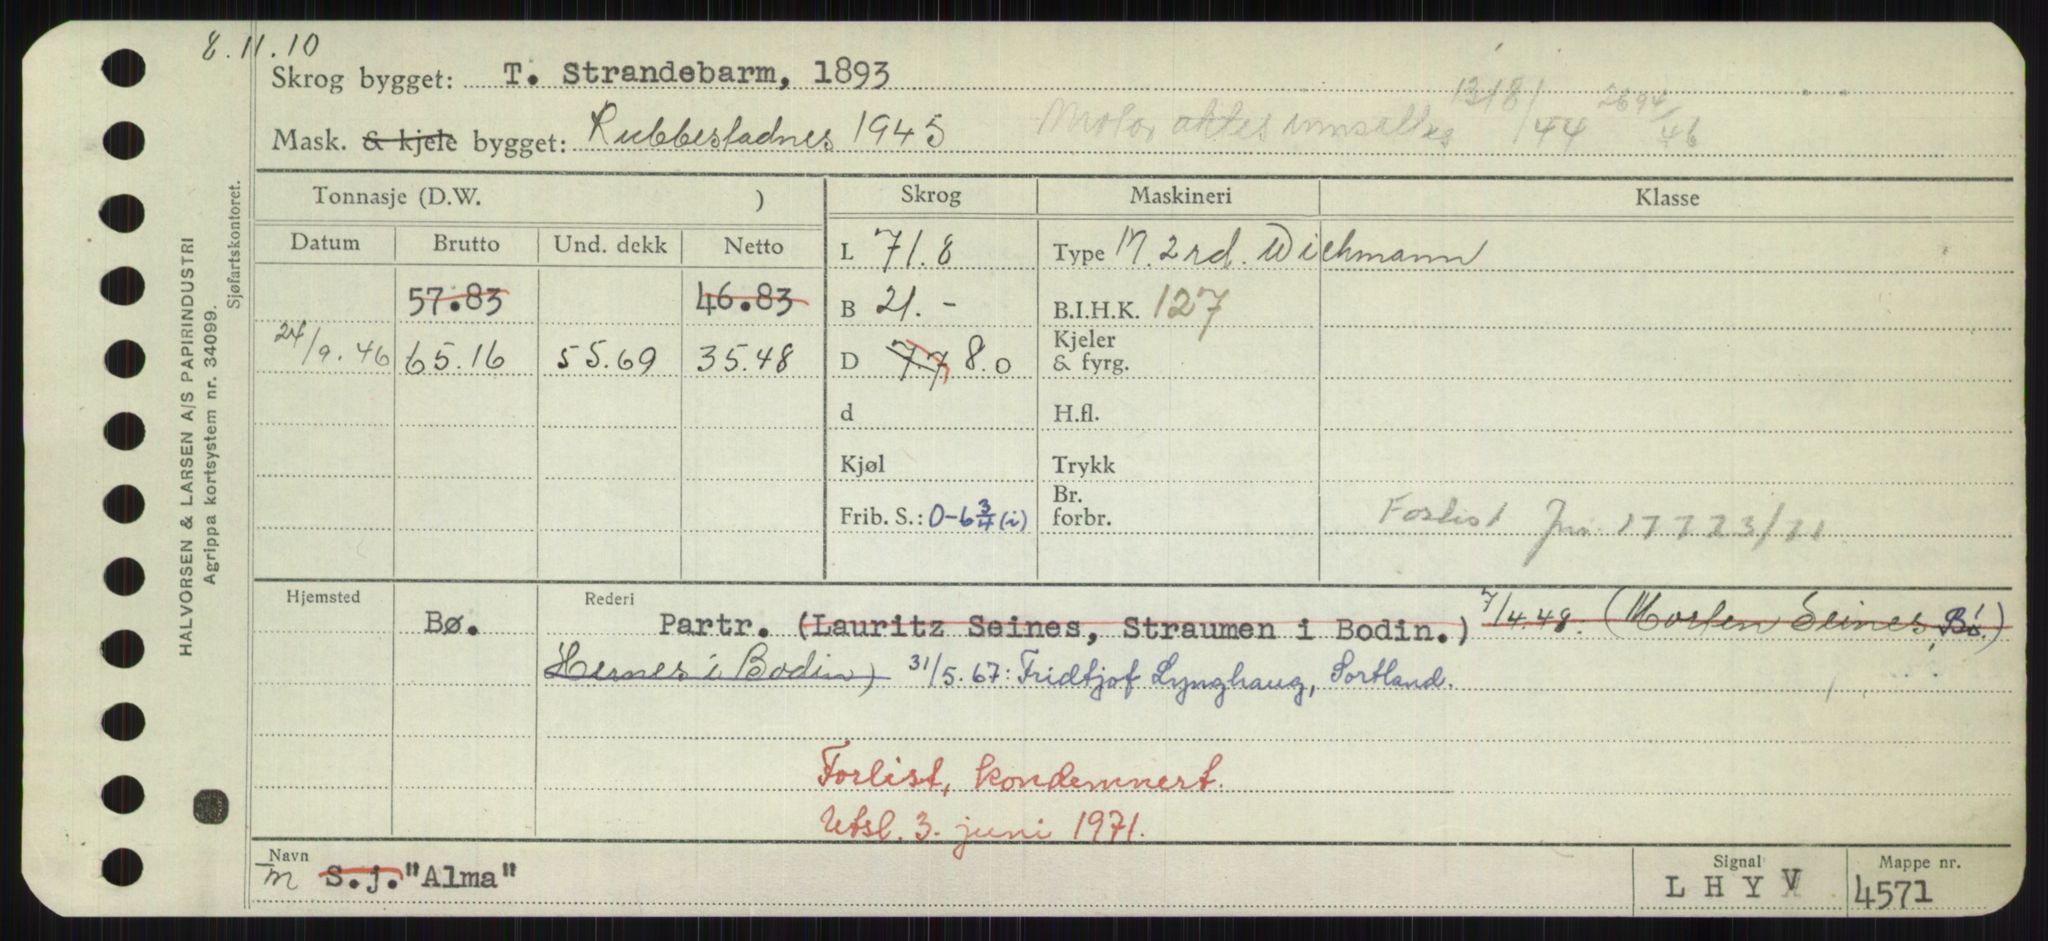 8.11.10
Skrog bygget: T. Strandebarm, 1893
Mask. & kjele bygget: Rubbestadnes 1945 Motor aktes innsattes 1318/44 2694/46
Tonnasje (D.W. ) Skrog Maskineri Klasse
Datum Brutto Und. dekk Netto L 71.8 Type M. 2 rd. Wichmann
57.83 46.83 B 21.- B.I.H.K. 127
24/9.46 65.16 55.69 35.48 D 7.7 8.0 Kjeler & fyrg.
d H.fl.
Kjøl Trykk
Frib. S.: 0-6 3/4 (i) Br. forbr. Forlist Jnr.
Hjemsted Rederi
Bø. Partr. (Lauritz Seines, Straumen i Bodin.) 7/4.48. (Morten Seines, Bø.)
Hernes i Bodin) 31/5.67: Fridtjof Lynghaug, Sortland.
Forlist, kondemnert.
Utsl. 3. juni 1971.
Navn Signal Mappe nr.
M S.j. "Alma" L H Y V 4571
HALVORSEN & LARSEN A/S PAPIRINDUSTRI
Agrippa kortsystem nr. 34099.
Sjøfartskontoret.